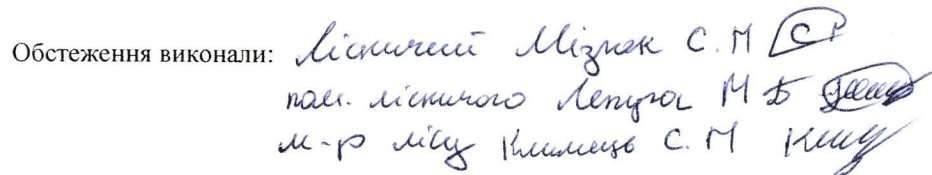 Обстеження виконали: Лісничий Мізюк С. М
пом. лісничого Лепуга М Б
м-р лісу Климець С. М